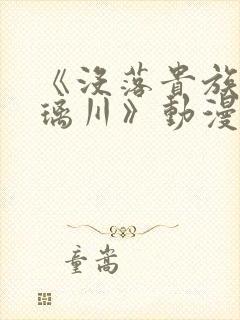 《没落貴族
璃川》動漫
童嵩